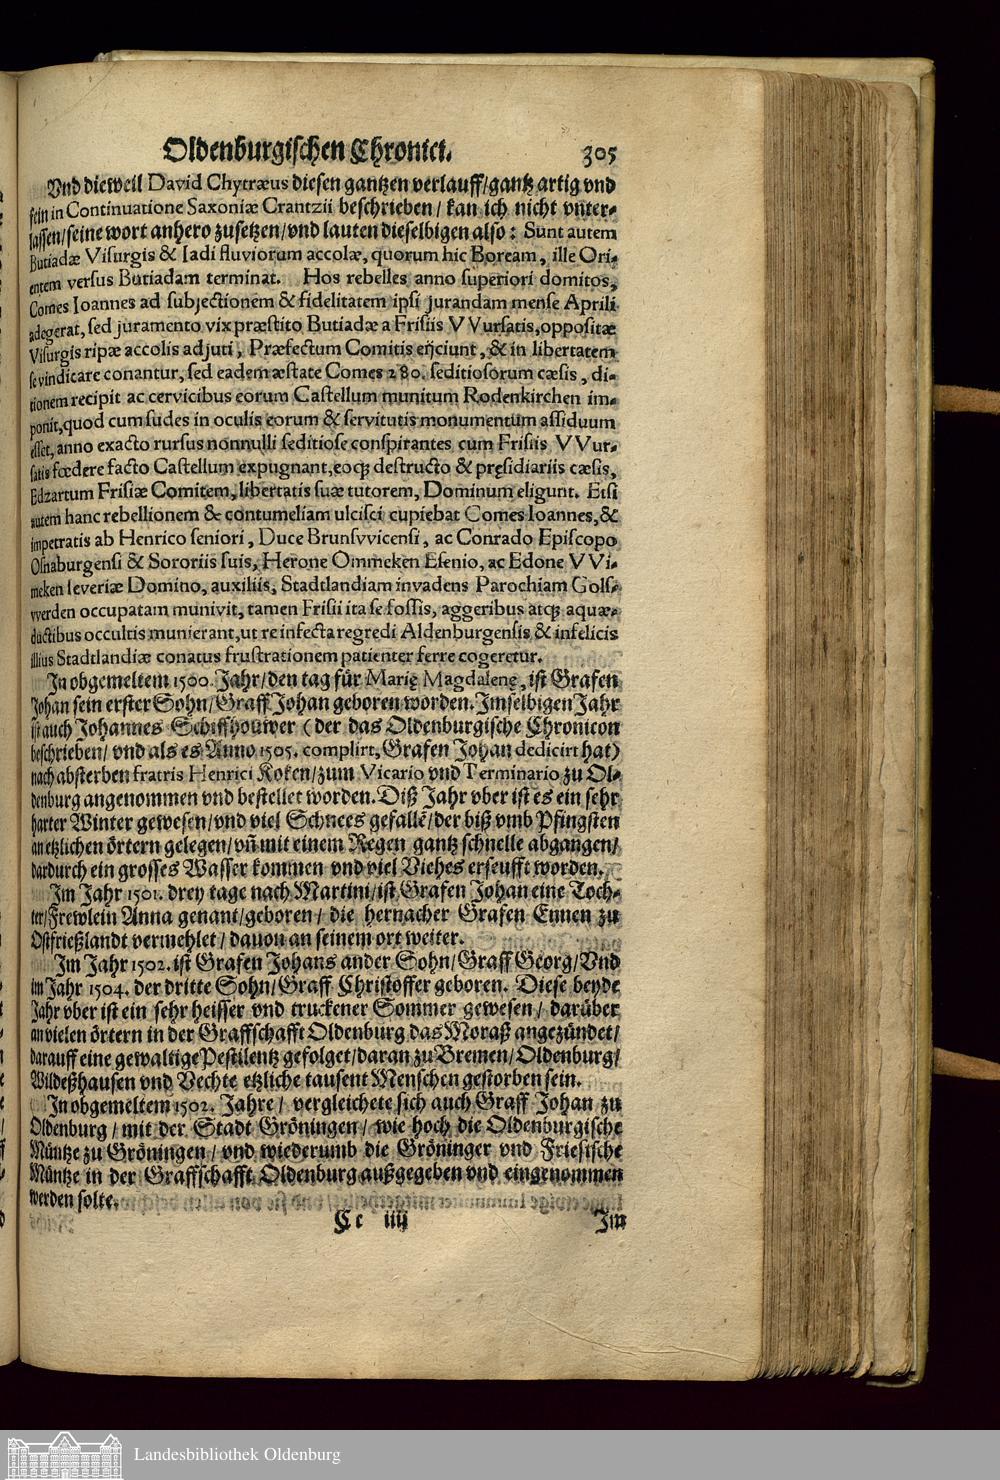 Oldenburgischen Chronici. 305
Vnd dieweil David Chytræus diesen gantzen verlauff/gantz artig vnd
fein in Continuatione Saxoniæ Crantzii beschrieben/ kan ich nicht vnter-
lassen/seine wort anhero zusetzen/vnd lauten dieselbigen also: Sunt autem
Butiadæ Visurgis & Iadi fluviorum accolæ, quorum hic Boream, ille Ori-
entem versus Butiadam terminat. Hos rebelles anno superiori domitos,
Comes Ioannes ad subjectionem & fidelitatem ipsi jurandam mense Aprili
adegerat, sed juramento vix præstito Butiadæ a Frisiis VVursatis, oppositæ
Visurgis ripæ accolis adjuti, Præfectum Comitis eijciunt, & in libertatem
se vindicare conantur, sed eadem æstate Comes 280. seditiosorum cæsis, di-
tionem recipit ac cervicibus eorum Castellum munitum Rodenkirchen im-
ponit, quod cum sudes in oculis eorum & servitutis monumentum assiduum
esset, anno exacto rursus nonnulli seditiose conspirantes cum Frisiis VVur-
satis fœdere facto Castellum expugnant, eoq; destructo & pręsidiariis cæsis,
Edzartum Frisiæ Comitem, libertatis suæ tutorem, Dominum eligunt. Etsi
autem hanc rebellionem & contumeliam ulcisci cupiebat Comes Ioannes, &
impetratis ab Henrico seniori, Duce Brunsvvicensi, ac Conrado Episcopo
Osnaburgensi & Sororiis suis, Herone Ommeken Esenio, ac Edone VVi-
meken Ieveriæ Domino, auxiliis, Stadtlandiam invadens Parochiam Gols-
vverden occupatam munivit, tamen Frisii ita se fossis, aggeribus atq; aquæ-
ductibus occultis munierant, ut re infecta regredi Aldenburgensis & infelicis
illius Stadtlandiæ conatus frustrationem patienter ferre cogeretur.
In obgemeltem 1500. Jahr/den tag für Marię Magdalenę, ist Grafen
Johan sein erster Sohn/Graff Johan geboren worden. Im selbigen Jahr
ist auch Johannes Schiffhouwer (der das Oldenburgische Chronicon
beschrieben/ vnd als es Anno 1505. complirt, Grafen Johan dedicirt hat)
nach absterben fratris Henrici Koken/zum Vicario vnd Terminario zu Ol-
denburg angenommen vnd bestellet worden. Diß Jahr vber ist es ein sehr
harter Winter gewesen/vnd viel Schnees gefallē/der biß vmb Pfingsten
an etzlichen örtern gelegen/ vñ mit einem Regen gantz schnelle abgangen/
dardurch ein grosses Wasser kommen vnd viel Viehes erseufft worden.
Im Jahr 1501. drey tage nach Martini/ist Grafen Johan eine Toch-
ter/Frewlein Anna genant/geboren/ die hernacher Grafen Ennen zu
Ostfrießlandt vermehlet/ dauon an seinem ort weiter.
Im Jahr 1502. ist Grafen Johans ander Sohn/Graff Georg/Vnd
im Jahr 1504. der dritte Sohn/Graff Christoffer geboren. Diese beyde
Jahr vber ist ein sehr heisser vnd truckener Sommer gewesen/ darüber
an vielen örtern in der Graffschafft Oldenburg das Moraß angezündet/
darauff eine gewaltige Pestilentz gefolget/daran zu Bremen/Oldenburg/
Wildeßhausen vnd Vechte etzliche tausent Menschen gestorben sein.
In obgemeltem 1502. Jahre/ vergleichete sich auch Graff Johan zu
Oldenburg/ mit der Stadt Gröningen/ wie hoch die Oldenburgische
Müntze zu Gröningen/ vnd wiederumb die Gröninger vnd Friesische
Müntze in der Graffschafft Oldenburg außgegeben vnd eingenommen
werden solte.
Cc iiij Im
Landesbibliothek Oldenburg